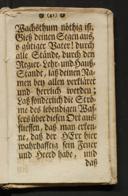 ( 41 )
Wachsthum nöthig ist.
Gieß deinen Segen aus,
o gütiger Vater! durch
alle Stände, durch den
Regier-Lehr-und Hauß-
Stand, laß deinen Na-
men bey allen verkläret
und herrlich werden;
Laß sonderlich die Strö-
me des lebendigen Waß-
sers über diesen Ort aus-
fliessen, daß man erken-
ne, daß der HErr hier
wahrhafftig sein Feuer
und Heerd habe, und
daß